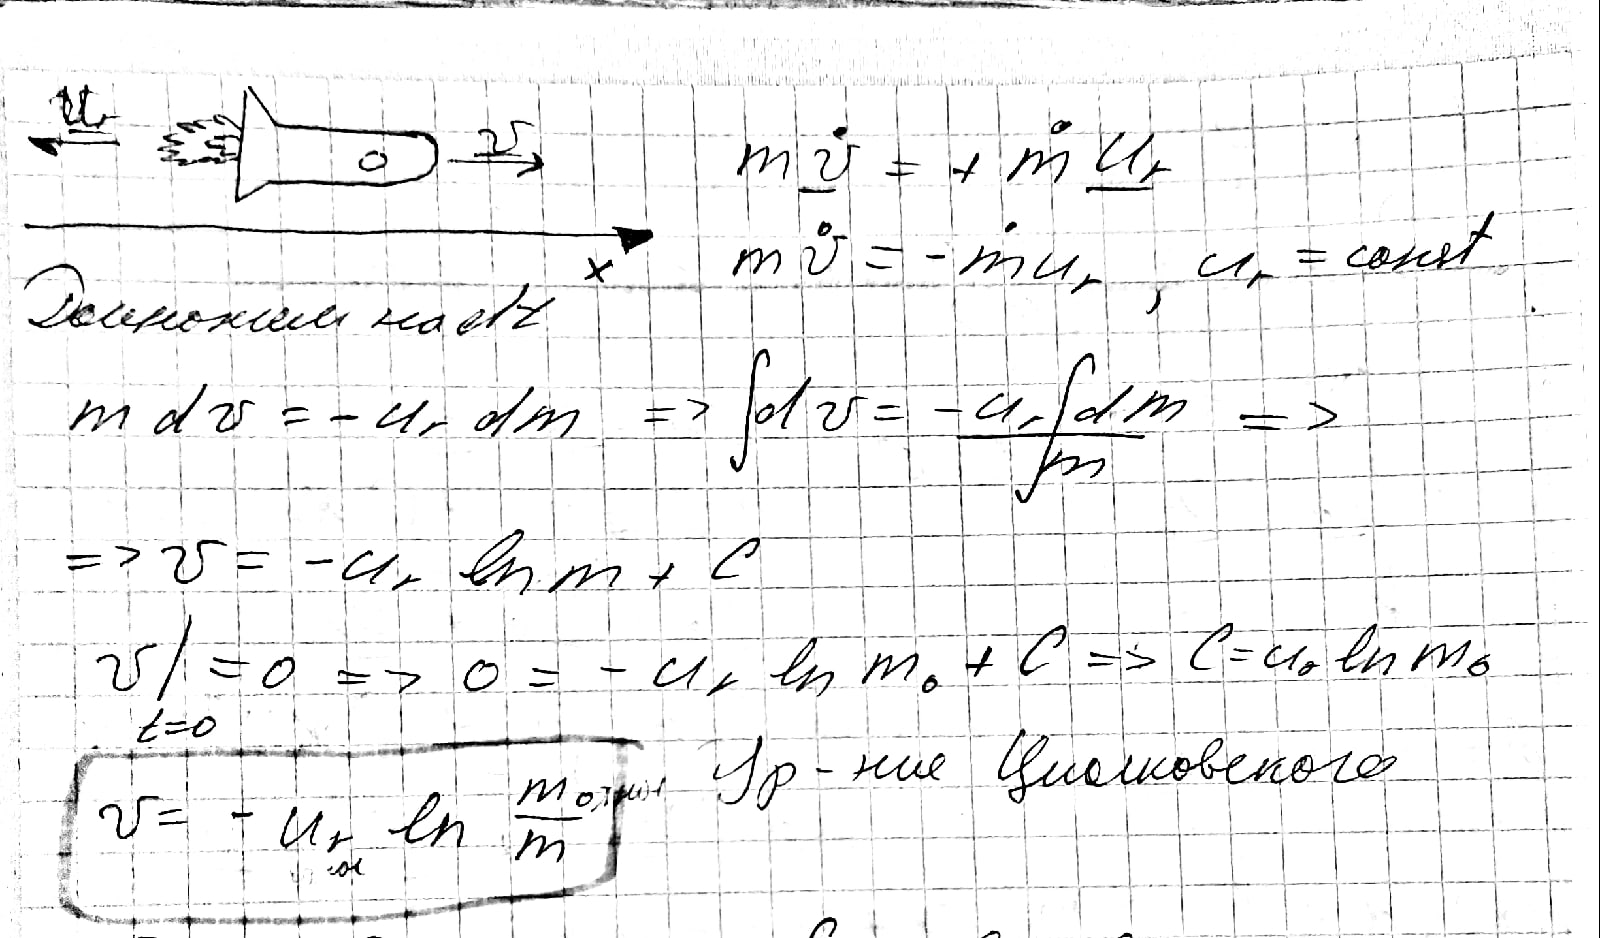 u_r v m v̇ = + ṁ u_r
x m v̇ = - ṁ u_r , u_r = const.
Домножим на dt
m dv = - u_r dm => ∫dv = - u_r ∫ dm/m =>
=> v = - u_r ln m + C
v|_{t=0} = 0 => 0 = - u_r ln m_0 + C => C = u_r ln m_0
v = - u_r ln m_0/m Ур-ние Циолковского